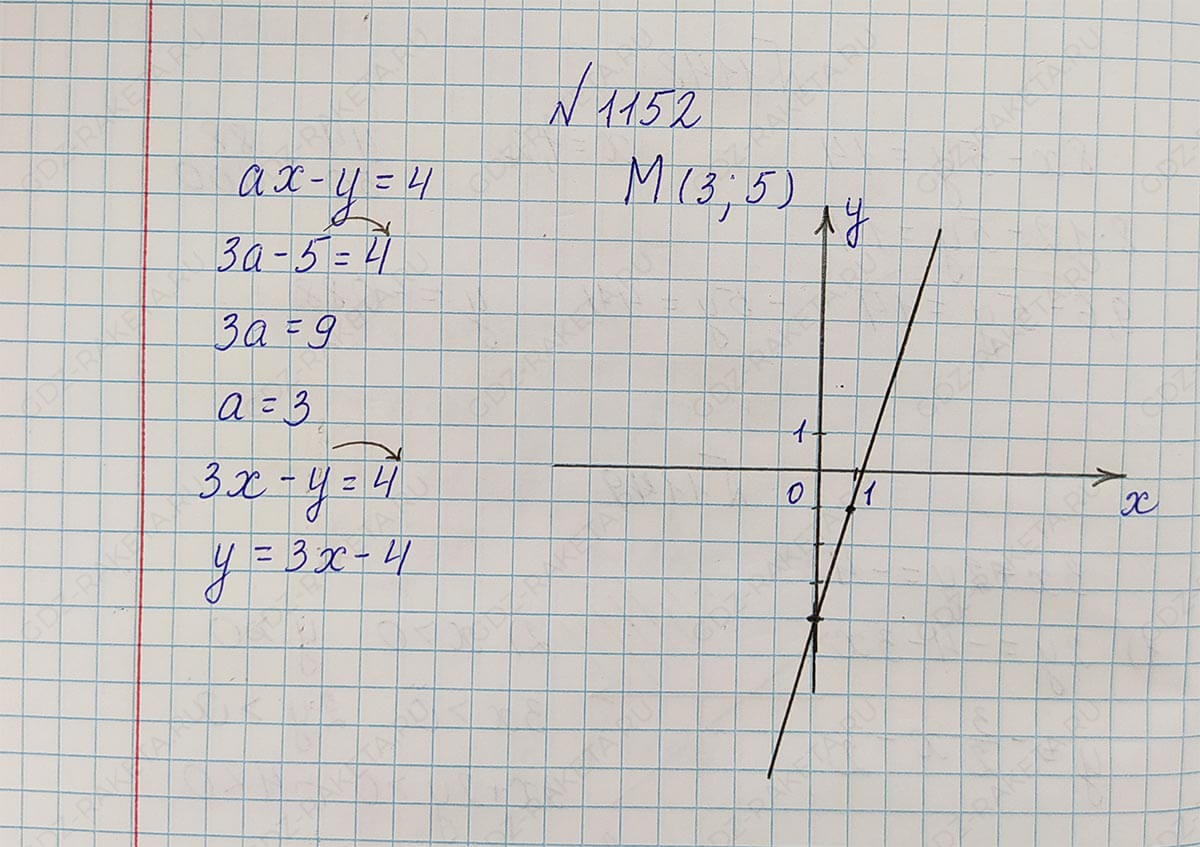 № 1152
ax - y = 4
M (3; 5)
3a - 5 = 4
3a = 9
a = 3
3x - y = 4
y = 3x - 4
y
1
0
1
x
GDZ-RAKETA.RU